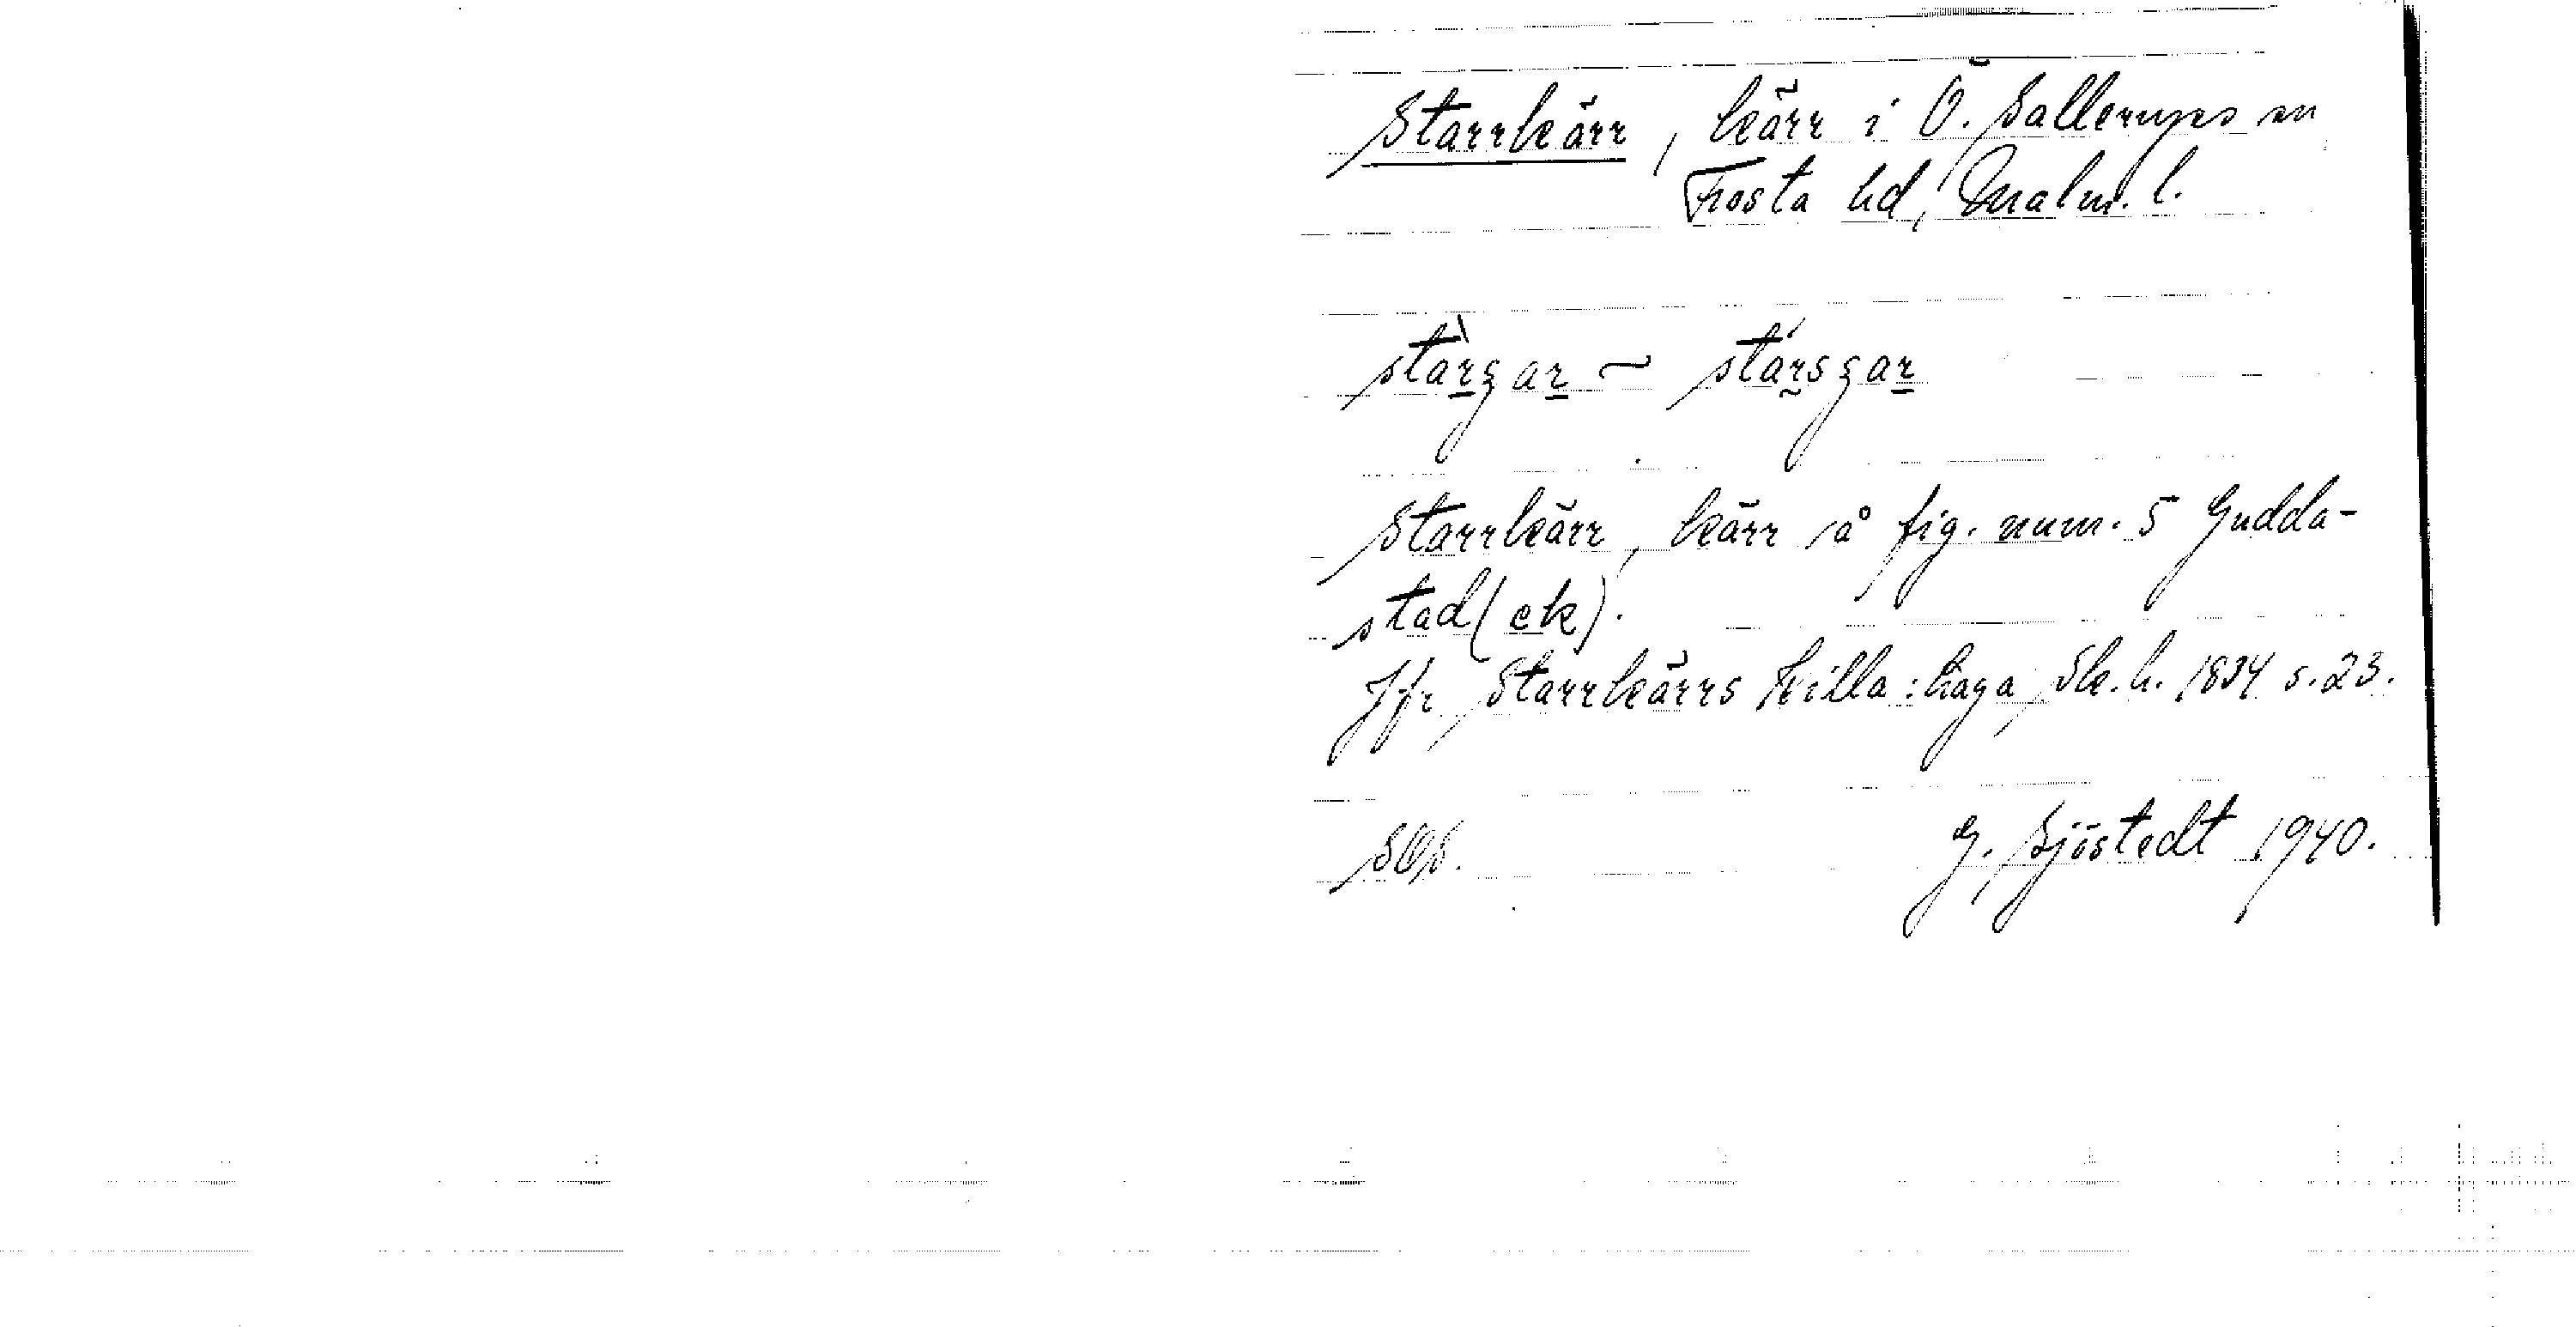 Starrkärr, kärr i Ö. Sallerups sn
Frosta hd, Malm. l.
stàrʒar ~ stársʒar
Starrkärr, kärr å fig. num. 5 Gudda-
stad (ek).
Jfr Starrkärrs Killa:haga, Sk. h. 1834 s. 23.
SOS. G. Sjöstedt 1940.